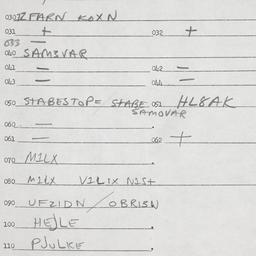 030 ZFARN KOXN
031 + 032 +
033 —
040 SAMSVAR
041 = 042 =
043 = 044 =
050 STABESTOP= STABE 051 HL8AK
SAMOVAR
060 —
061 — 062 +
070 MILX
080 MILX VILIX NIST
090 UFZIDN / OBRISW
100 HEJLE
110 PJULKE